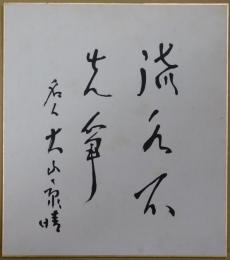 流水不
先争
名人 大山康晴